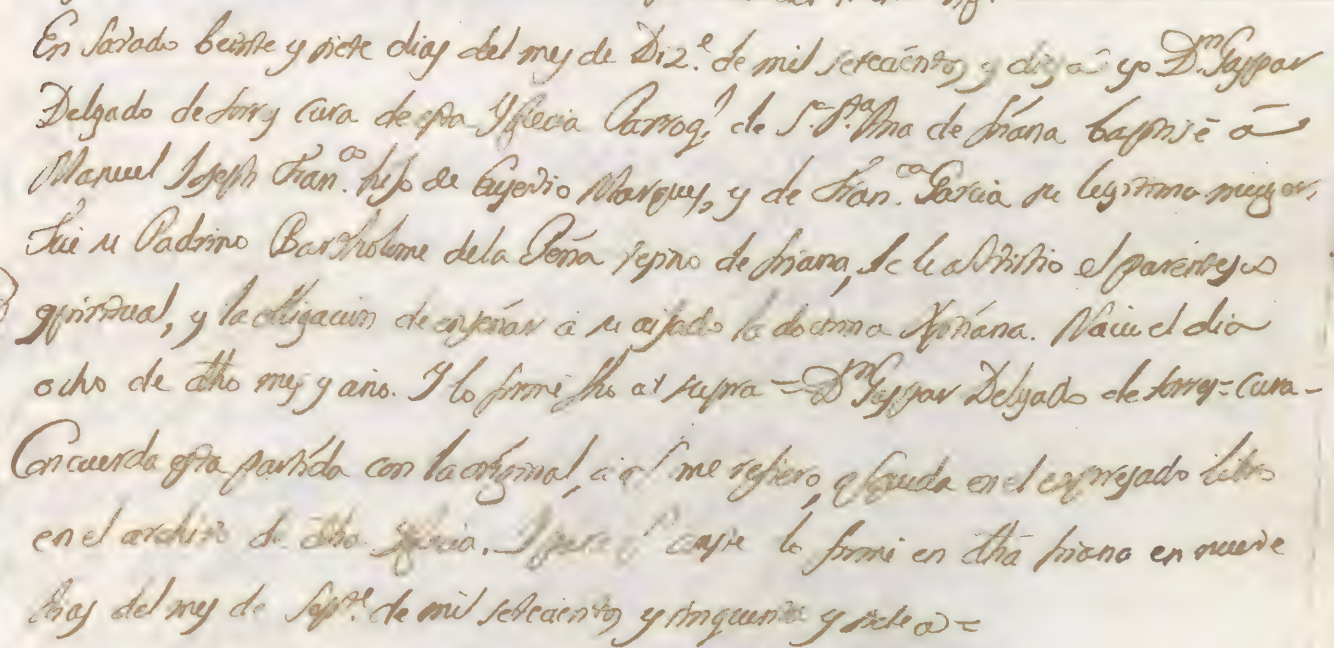 En Savado beinte y siete dias del mes de Diz.e de mil setecientos y diez a.s yo D.n Gaspar
Delgado de torres cura de esta Yglecia Parroq.l de S.ra S.ta Ana de triana baptisé a
Manuel Joseph Fran.co hijo de Eusevio Marques, y de Fran.ca Garcia su legitima muger,
Fue su Padrino Bartholome dela Peña vesino de triana, se le advirtio el parentesco
espiritual, y la obligacion de enseñar a su aijado la doctrina Xptiana. Nacio el dia
ocho de dho mes y año. Y lo firmé fho ut supra = D.n Gaspar Delgado de torres = cura -
Concuerda esta partida con la original, a q.e me refiero, q.e queda en el expresado libro
en el archivo de dha Yglecia. Y para q.e conste lo firmé en dha triana en nueve
dias del mes de Sep.re de mil setecientos y sinquenta y siete a.s =